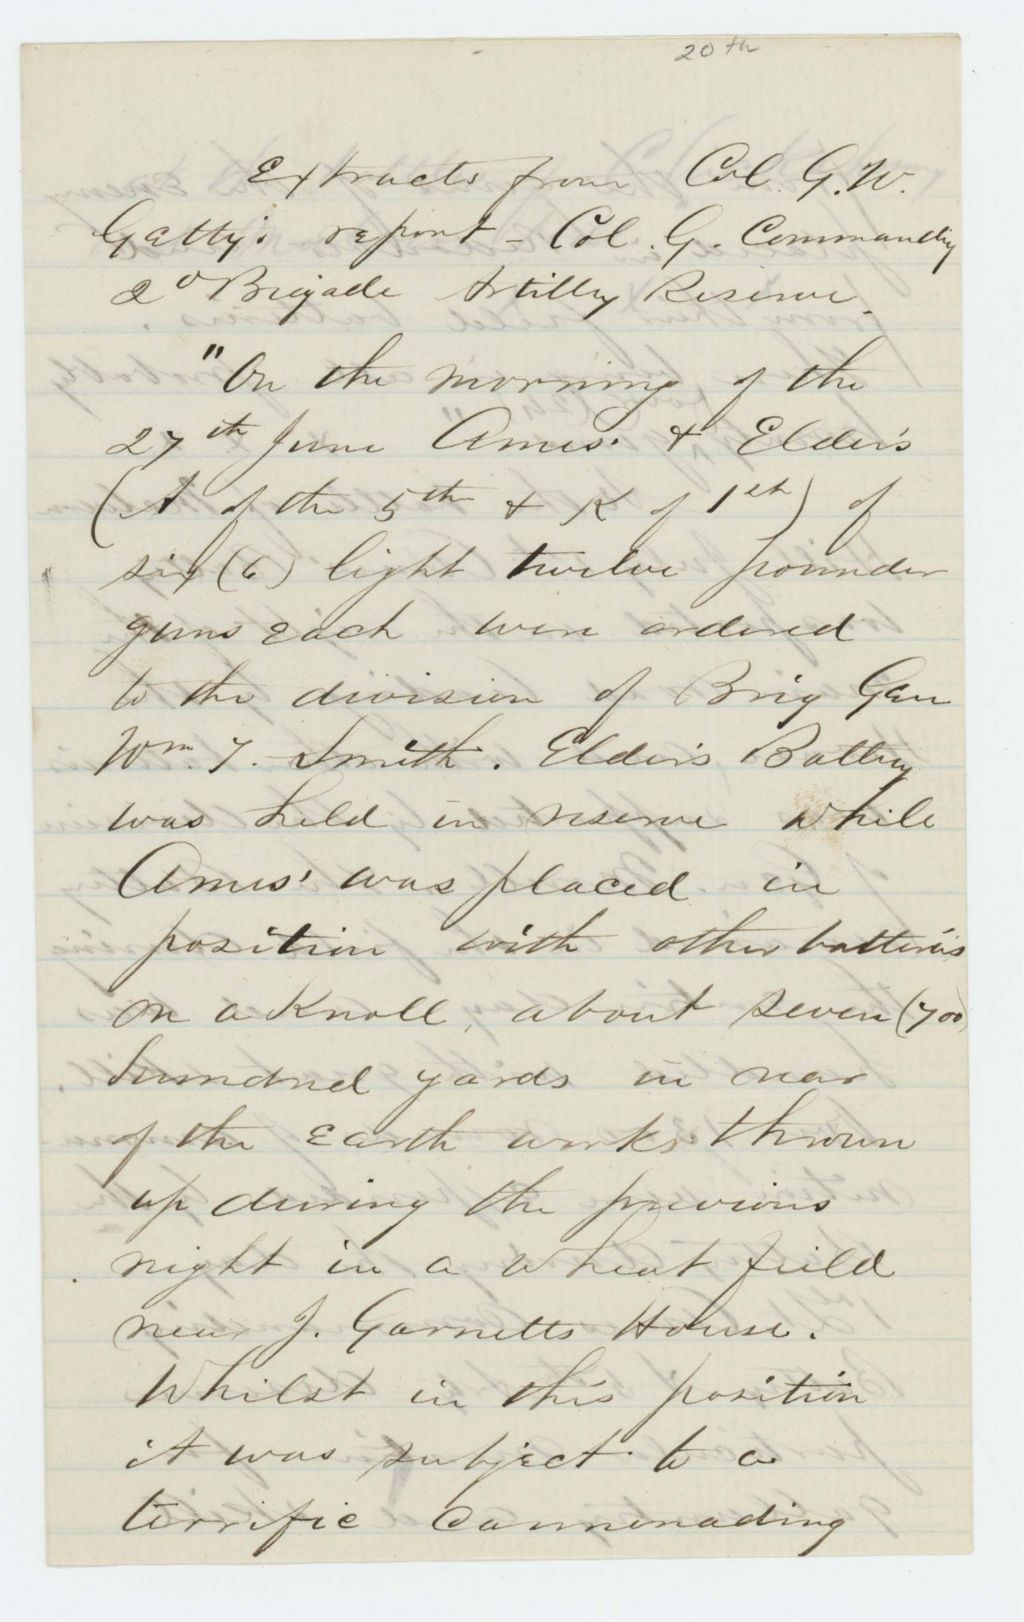 20th
Extracts from Col. G. W.
Getty's report - Col. G. Commanding
2d Brigade Artillry Reserve.
"On the morning of the
27th June Ames' & Elder's
(A of the 5th & K of 1st) of
six (6) light twelve pounder
guns each were ordered
to the division of Brig Gen
Wm. F. Smith. Elder's Battery
was held in reserve while
Ames' was placed in
position with other batteries
on a Knoll, about seven (700)
hundred yards in rear
of the Earth works thrown
up during the previous
night in a wheat field
near J. Garnetts House.
Whilst in this position
it was subject to a
terrific Cannonading